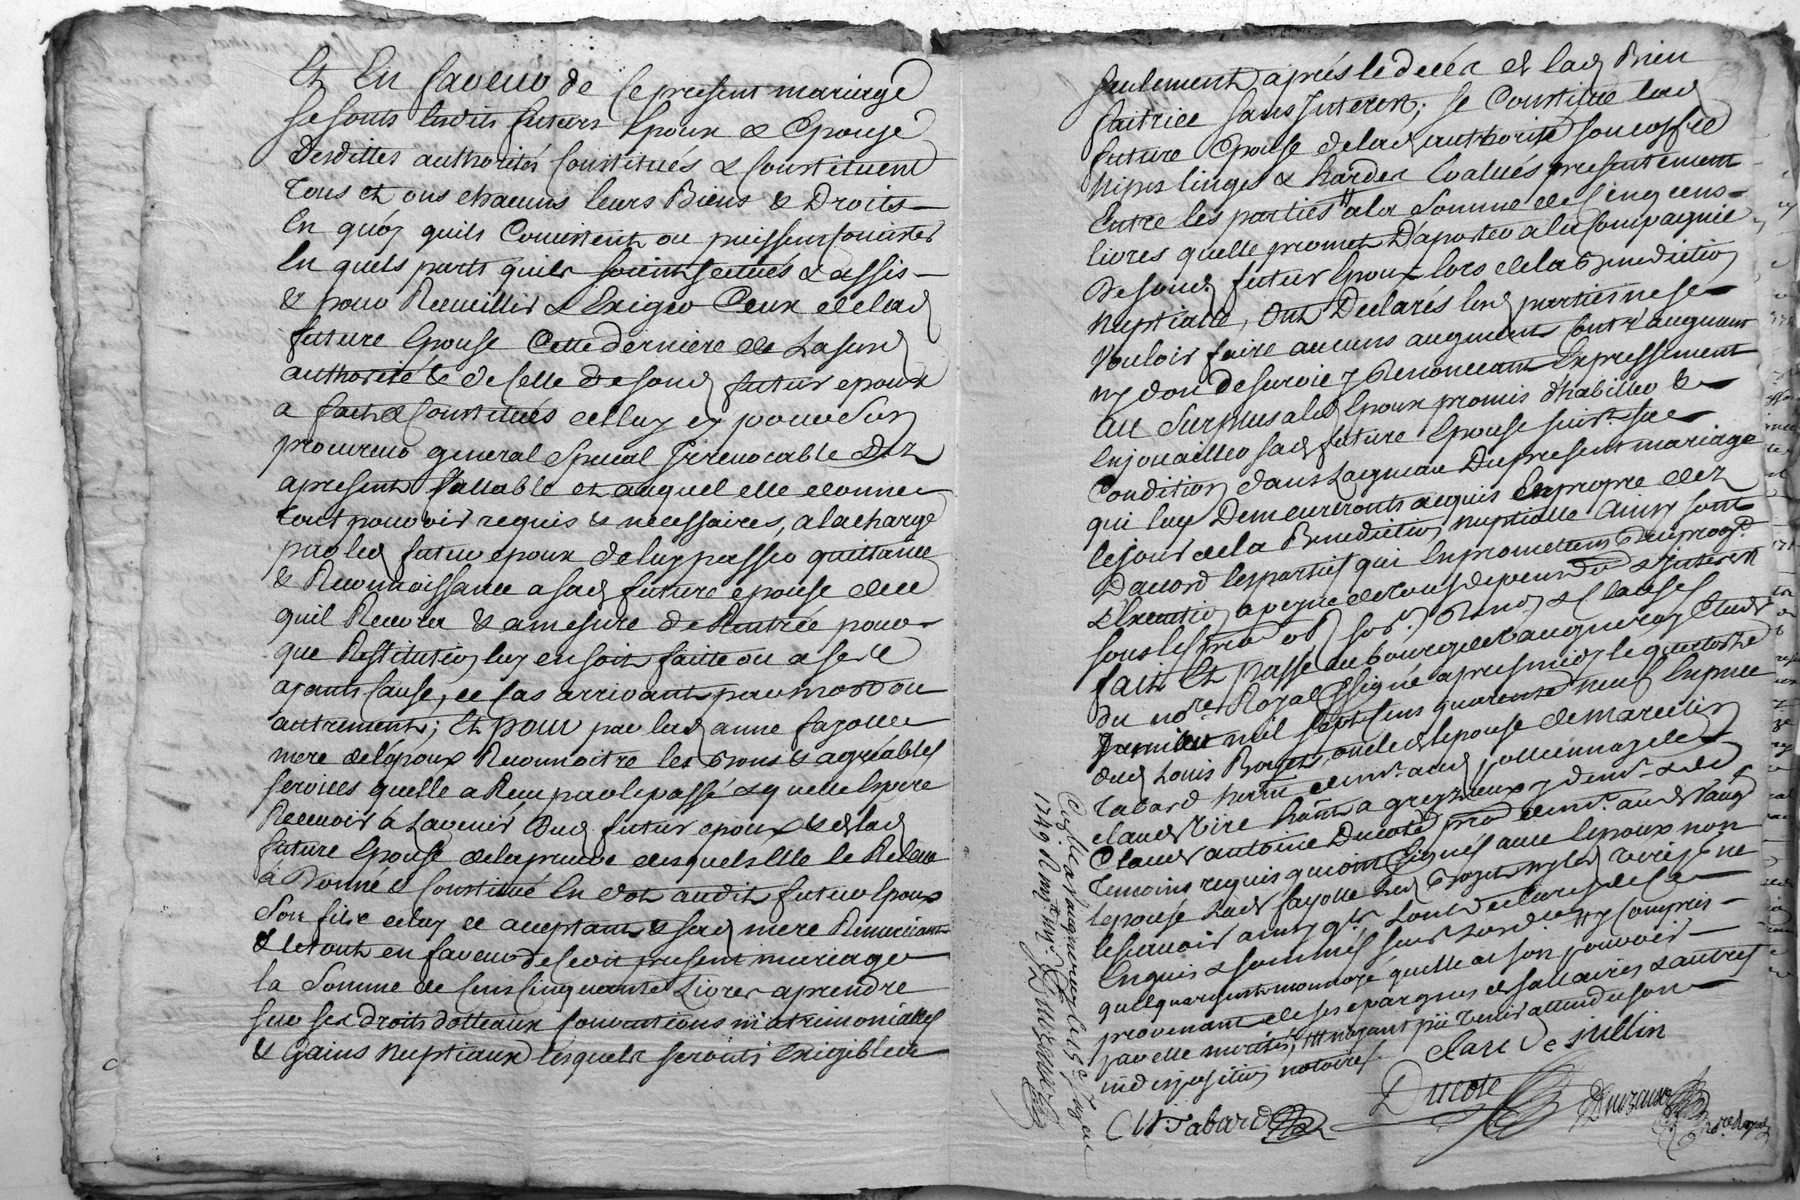 Et En faveur de Ce present mariage
se sont lesdits futurs Epoux & Epouse
desdittes authorités Constitués & Constituent
tous et uns chacuns leurs Biens & Droits
En quoy quils Consistent ou puissent Consister
En quels parts quils soient scitués & assis
& pour Recueillir & Exiger Ceux de lad
future Epouse Cette derniere de Lasusd
authorité & de Celle de sond futur epoux
a fait & Constitués celluy cy pour son
procureur general Special Irrevocable dez
apresent Vallable et auquel elle donne
tout pouvoir requis & necessaires, a la charge
par led futur epoux de luy passer quittance
& Reconnoissance a sad future epouse de ce
quil Recevra & a mesure de Rentrée pour
que Restitution luy en soit faitte ou a ses
ayants Cause, ce Cas arrivant par mort ou
autrement; Et pour par lad anne fayolle
mere de lépoux Reconnoitre les bons & agreables
services quelle a Reçu par le passé & quelle Espere
Recevoir à Lavenir dud futur epoux & de lad
future Epouse de la preuve desquels Elle le Releve
a Donné & Constitué En dot audit futur Epoux
Son fils celuy ce acceptant & sad mere Remerciant
& le tout en faveur de ceduit present mariage
la Somme de Cent Cinquante Livres aprendre
sur ses droits dotteaux Conventions matrimonialles
& Gains Nuptiaux lesquels seronts Exigibles
seulement après le decés de lad Bien
faitrice sans Interest; se Constitue lad
future Epouse de lad authorité son coffre
nipes linges & hardes Evalués presentement
Entre les parties a la Somme de Cinq cens
livres quelle promet D'aporter a la Compagnie
de sond futur Epoux lors de la Benediction
Nuptialle, ont Declarés lesd parties ne se
Vouloir faire aucuns augment Contr'augment
ny don de survie y Renonceant Expressement
au Surplus a led Epoux promis d'habiller &
Enjoualler sad future Epouse suivt. sa
Condition dans Lagneau Du present mariage
qui luy Demeureronts acquis En propre dez
le jour de la Benediction Nuptialle Ainsy sont
Daccord les parties qui En promettent Reciproqt
L'execution a peyne de tous depens & Interest
sous les
fait Et Passé au bourg de Vaugneray Etude
du nore. Royal Ssigné apres midy le quatorze
Janvier mil Sept Cens quarante neuf En pnce
dud Louis oncle de lepouse de marcelin
Tabard
Claude Vire hant a grezieux
Claude antoine Ducoté
Temoins requis qui ont Signés avec l'epoux non
lepouse Lad fayolle ny led Vire pr ne
le scavoir ainsy qls L'ont declarés de ce
Enquis & sommés y Compris
quelqu argent monnoyé quelle a en son pouvoir
provenant de ses epargnes & sallaires & autres
par elle merités,
indisposition notoires
Claude jullin
Ducoté
M Tabard
nore Royal
Controllé a Vaugneray le 15e. Janer
1749